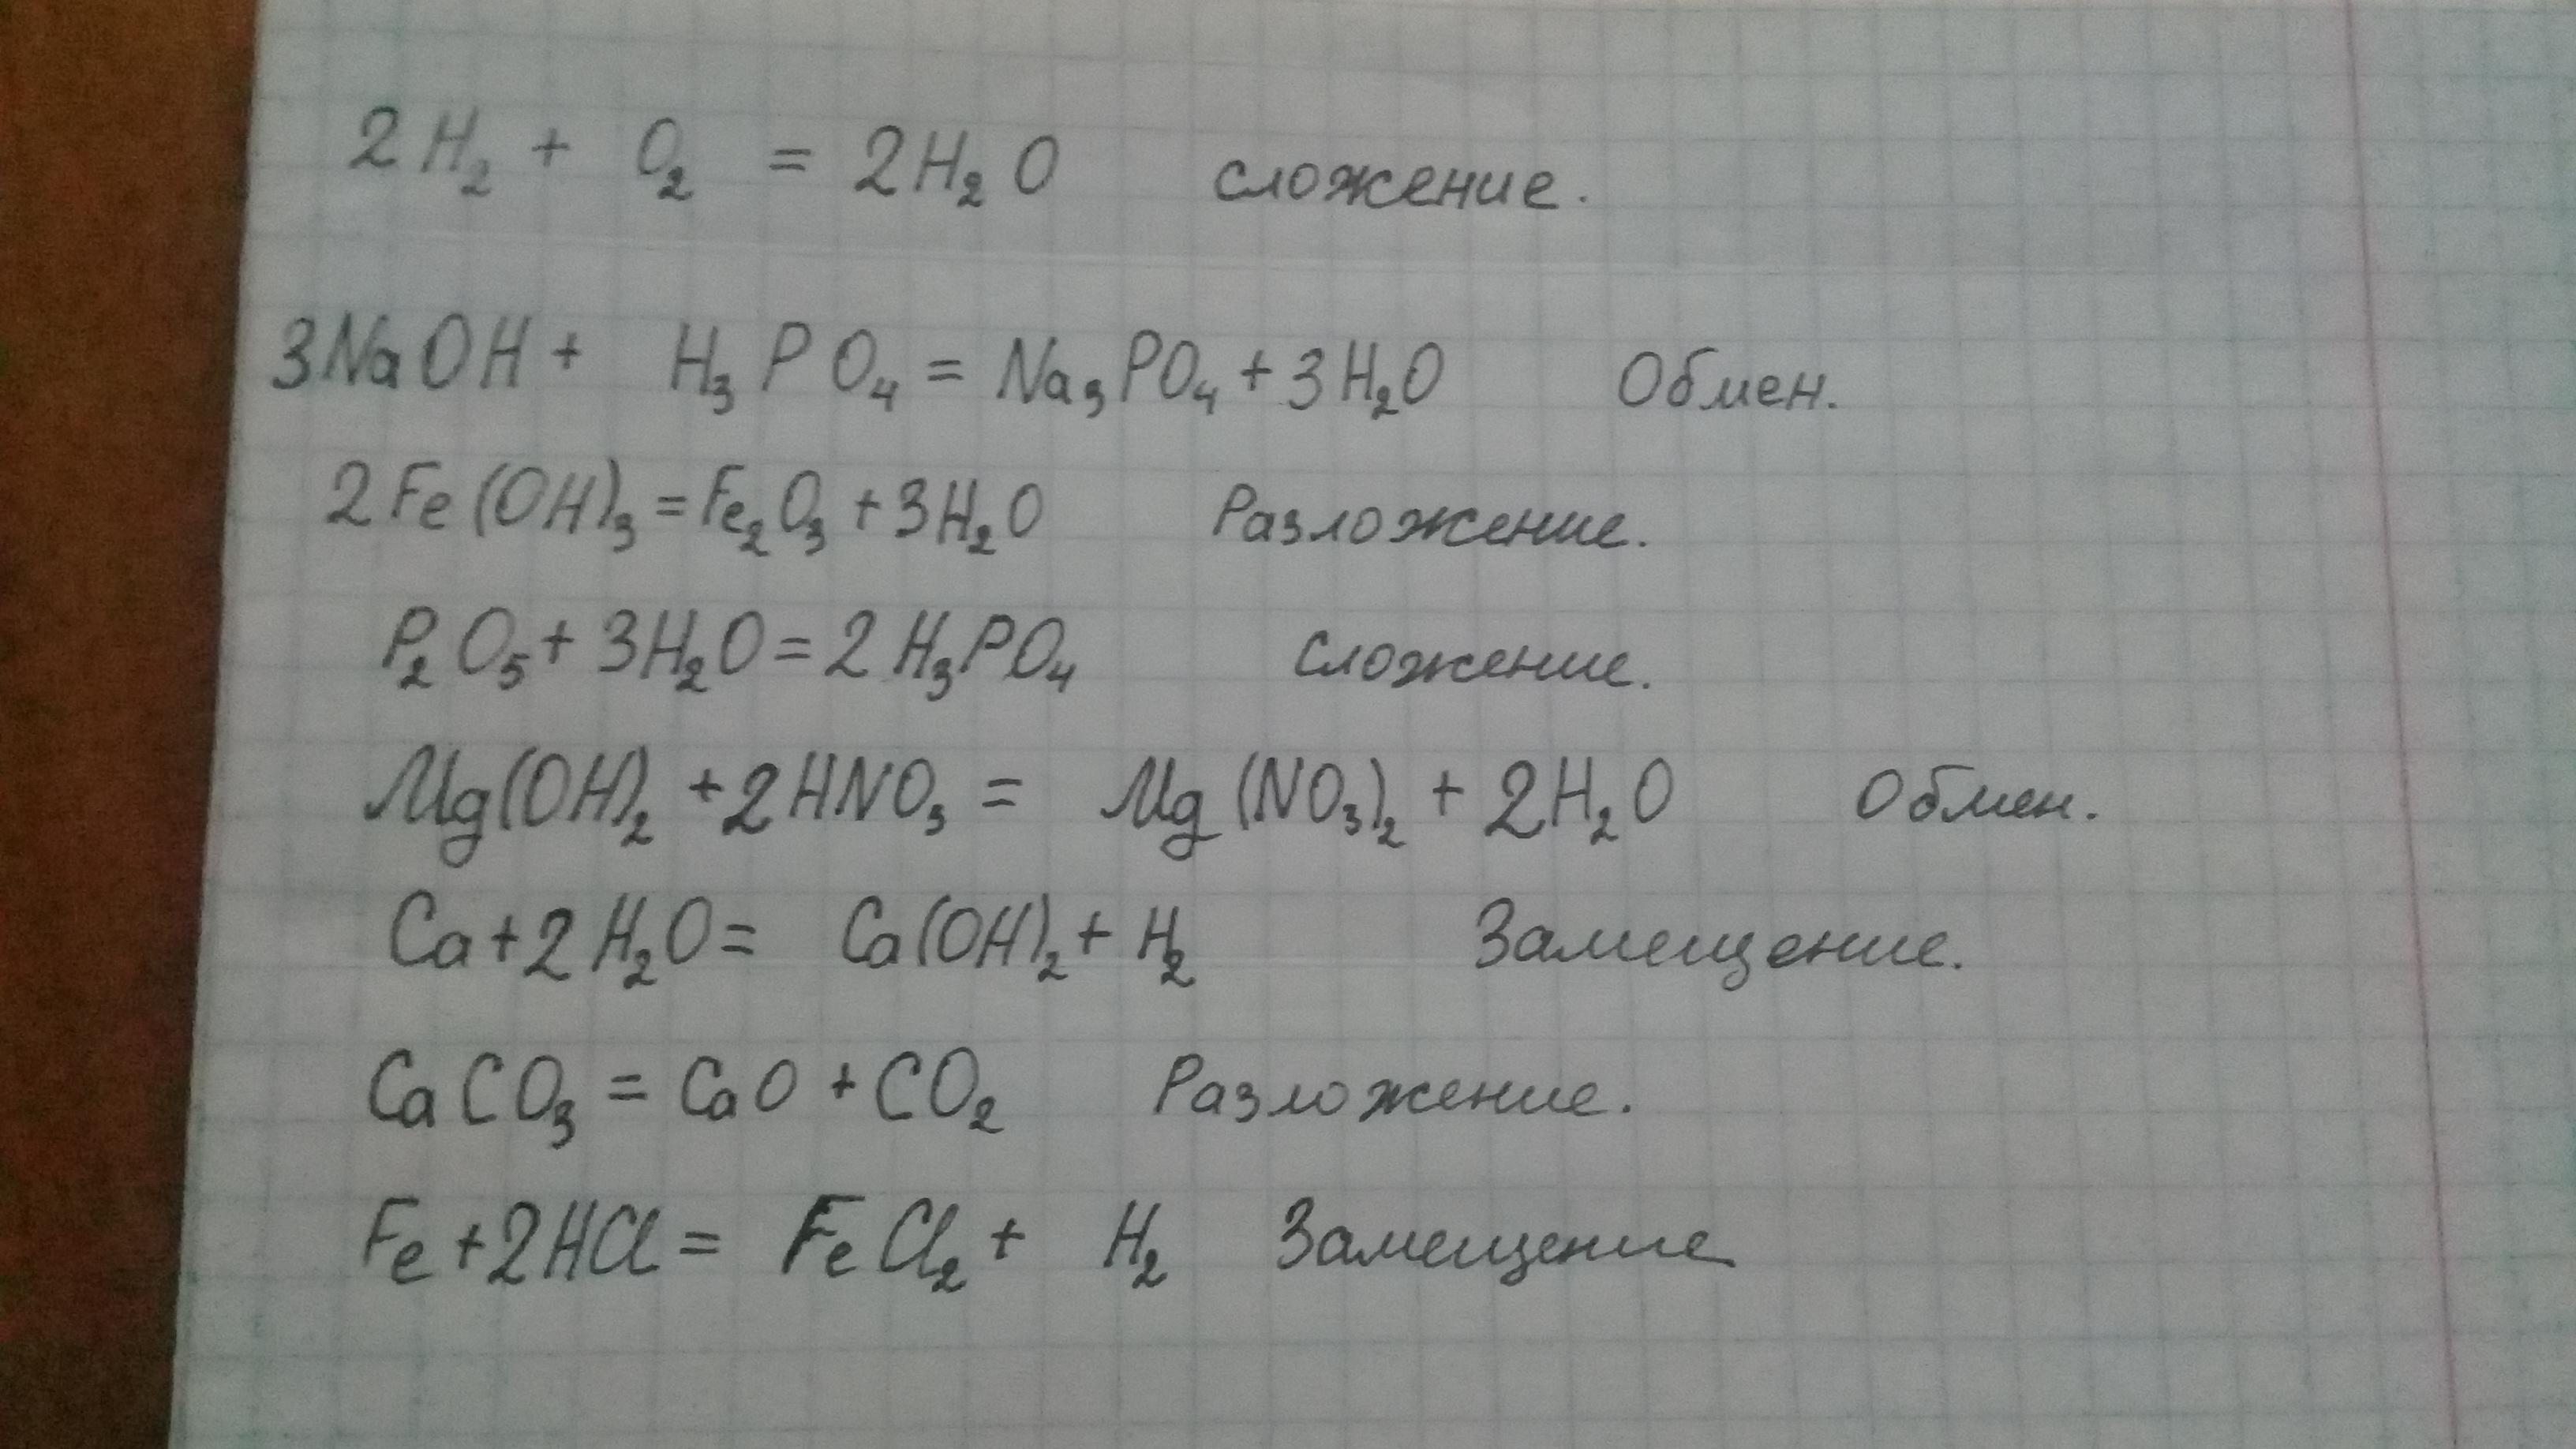 2H₂ + O₂ = 2H₂O сложение.
3NaOH + H₃PO₄ = Na₃PO₄ + 3H₂O Обмен.
2Fe(OH)₃ = Fe₂O₃ + 3H₂O Разложение.
P₂O₅ + 3H₂O = 2H₃PO₄ Сложение.
Mg(OH)₂ + 2HNO₃ = Mg(NO₃)₂ + 2H₂O Обмен.
Ca + 2H₂O = Ca(OH)₂ + H₂ Замещение.
CaCO₃ = CaO + CO₂ Разложение.
Fe + 2HCl = FeCl₂ + H₂ Замещение